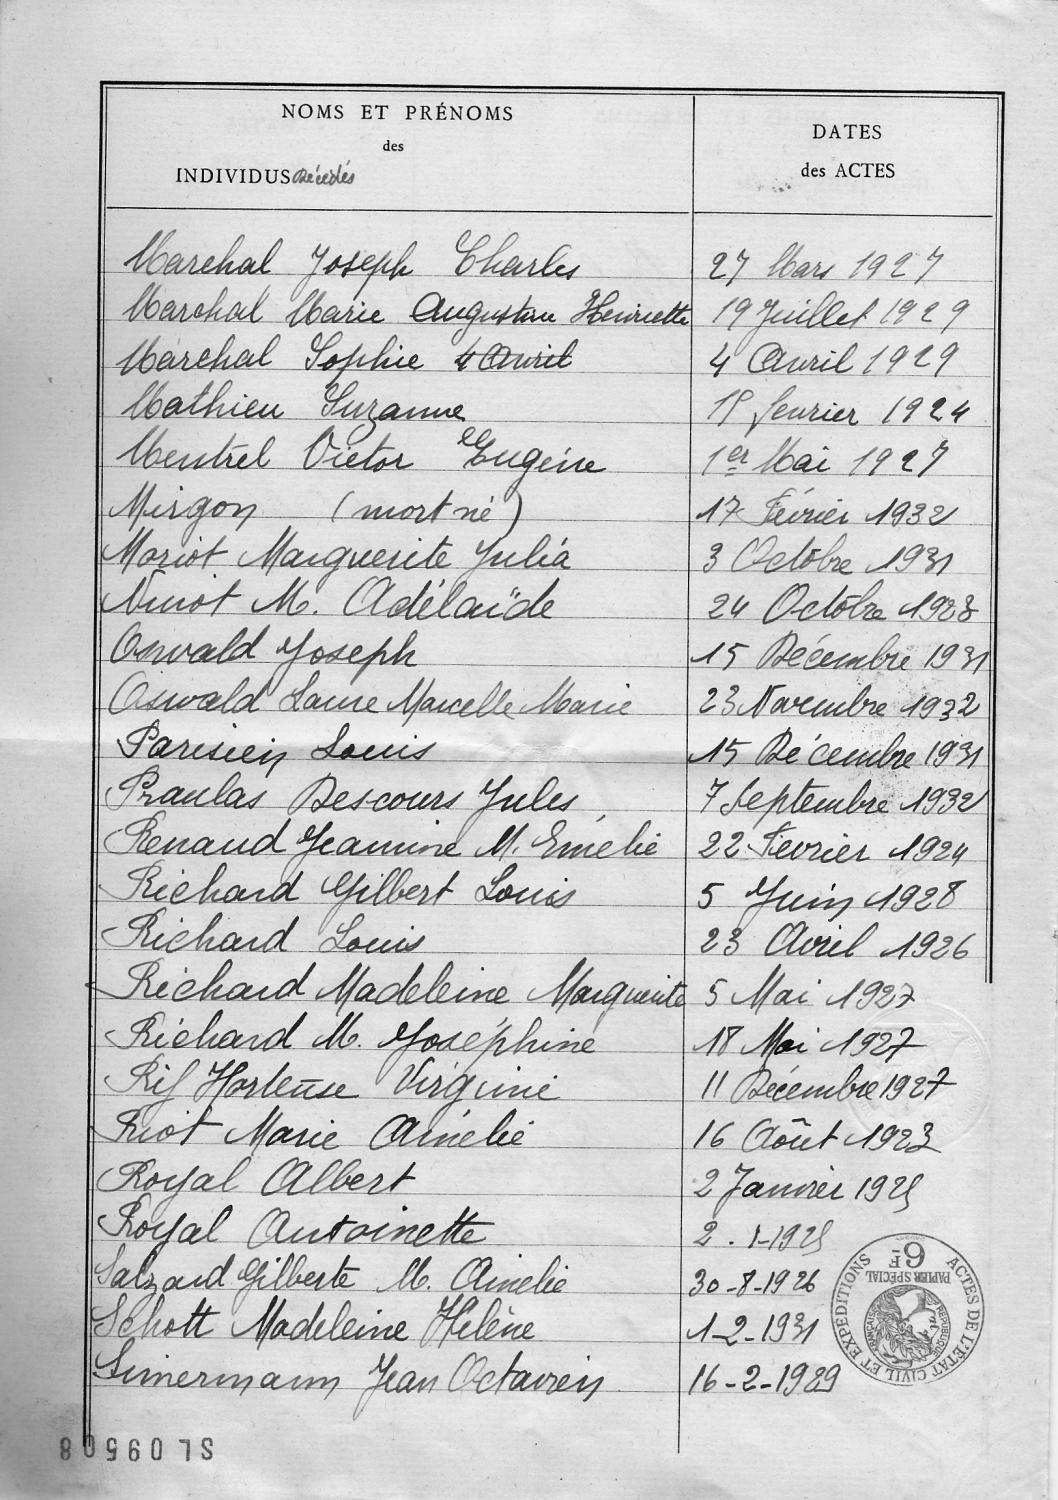 NOMS ET PRÉNOMS
des
INDIVIDUS Décédés
DATES
des ACTES
Marchal Joseph Charles 27 Mars 1927
Marchal Marie Augustine Henriette 19 Juillet 1929
Maréchal Sophie 4 Avril 4 Avril 1929
Mathieu Suzanne février 1924
Mentrel Victor Eugène 1er Mai 1927
Mirgon (mort né) 17 Février 1932
Moriot Marguerite Julia 3 Octobre 1931
M. Adélaïde 24 Octobre 1928
Oswald Joseph 15 Décembre 1931
Oswald Laure Marcelle Marie 23 Novembre 1932
Parisien Louis 15 Décembre 1931
Descours Jules 7 Septembre 1932
Renaud Jeannine M. Emélie 22 Février 1924
Richard Gilbert Louis 5 Juin 1928
Richard Louis 23 Avril 1926
Richard Madeleine Marguerite 5 Mai 1927
Richard M. Joséphine 18 Mai 1927
Hortense Virginie 11 Décembre 1927
Riot Marie Amélie 16 Août 1923
Royal Albert 2 Janvier 1925
Royal Antoinette 2.1-1925
Salzard Gilberte M. Amélie 30-8-1926
Schott Madeleine Hélène 1-2-1931
Simermann Jean Octavien 16-2-1929
ACTES DE L'ETAT CIVIL ET EXPEDITIONS
PAPIER SPÉCIAL
6F
SL 095908